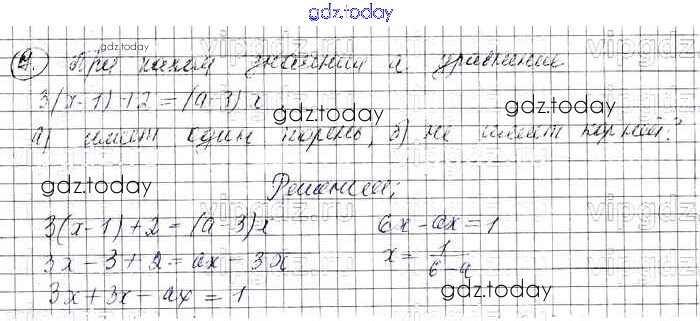 gdz.today
9. При каком значении а уравнение
3(x-1)+2=(a-3)x
а) имеет один корень, б) не имеет корней?
Решение:
3(x-1)+2=(a-3)x
3x-3+2=ax-3x
3x+3x-ax=1
6x-ax=1
x=1/(6-a)
gdz.today
gdz.today
gdz.today
gdz.today
gdz.today
gdz.today
vipgdz.ru
vipgdz.ru